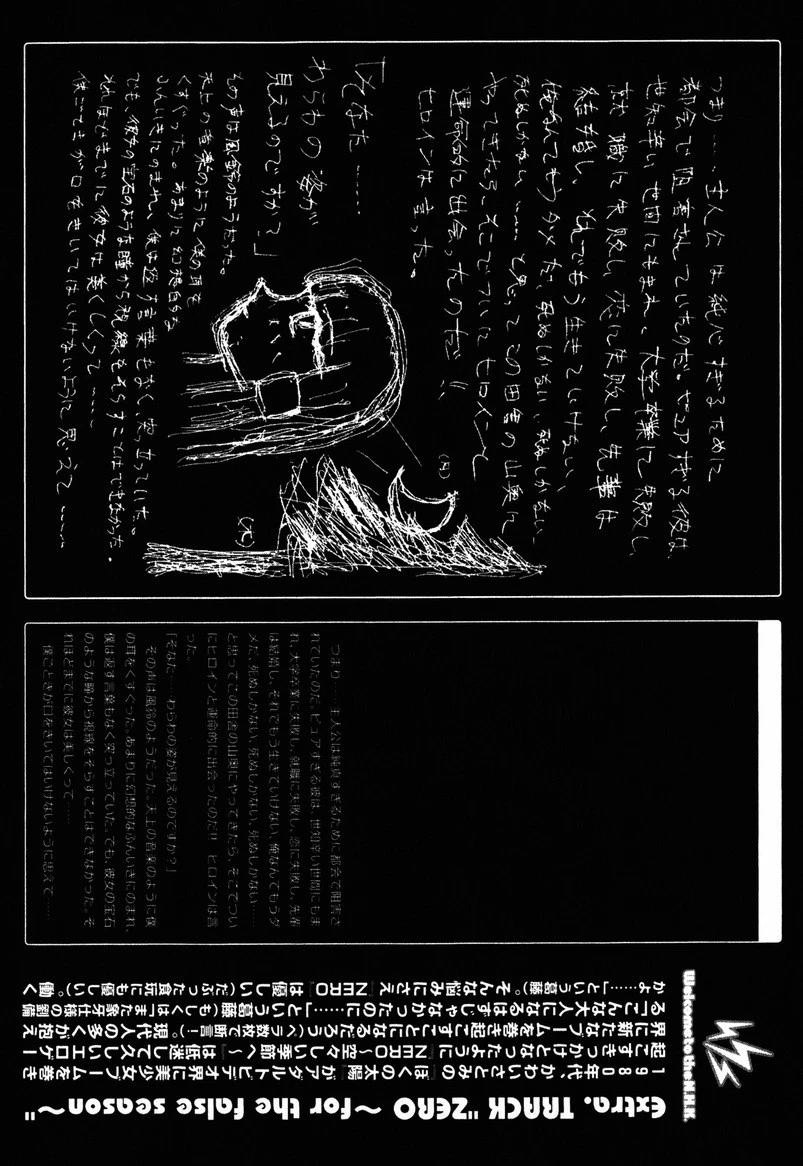 つまり……主人公は純心すぎるために
都会で阻害されていたのだ。ピュアすぎる彼は、
世知辛い世間にもまれ、大学卒業に失敗し、
就職に失敗し、恋に失敗し、先輩は
結婚し、それでもう生きていけない、
俺なんてもうダメだ、死ぬしかない、死ぬしかない、
死ぬしかない……と思ってこの田舎の山奥に
やってきたら、そこでついにヒロインと
運命的に出会ったのだ!!
ヒロインは言った。
「そなた……
わらわの姿が
見えるのですか?」
その声は風鈴のようだった。
天上の音楽のように僕の耳を
くすぐった。あまりに幻想的なる
ふんいきにのまれ、僕は返す言葉もなく突っ立っていた。
でも、彼女の宝石のような瞳から視線をそらすことはできなかった。
それほどまでに彼女は美しくって……
僕ごときが口をきいてはいけないように思えて……
(月)
(木)
つまり……主人公は純真すぎるために都会で阻害さ
れていたのだ。ピュアすぎる彼は、世知辛い世間にもま
れ、大学卒業に失敗し、就職に失敗し、恋に失敗し、先輩
は結婚し、それでもう生きていけない、俺なんてもうダ
メだ、死ぬしかない、死ぬしかない、死ぬしかない……
と思ってこの田舎の山奥にやってきたら、そこでつい
にヒロインと運命的に出会ったのだ!! ヒロインは言
った。
「そなた……わらわの姿が見えるのですか?」
その声は風鈴のようだった。天上の音楽のように僕
の耳をくすぐった。あまりに幻想的なふんいきにのまれ、
僕は返す言葉もなく突っ立っていた。でも、彼女の宝石
のような瞳から視線をそらすことはできなかった。そ
れほどまでに彼女は美しくって……
僕ごときが口をきいてはいけないように思えて……
Welcome to the N.H.K.
Extra. TRACK "ZERO ～for the false season～"
1980年代、かわいさとみの『ぼくの太陽』がアダルトビデオ界に美少女ブームを巻き
起こすきっかけとなったように『NERO～空々しい季節へ～』は低迷して久しいエロゲー
界に新たなブームを巻き起こすことになるだろう(で断言!)。現代人の多くが抱え
る「こんな大人になるはずじゃなかったのに……」という葛藤(もしくは「また象牙仕様の劉備
かよ……」という葛藤)。そんな悩みにさえ『NERO』は優しい(だぶった食玩にも優しい)。働く